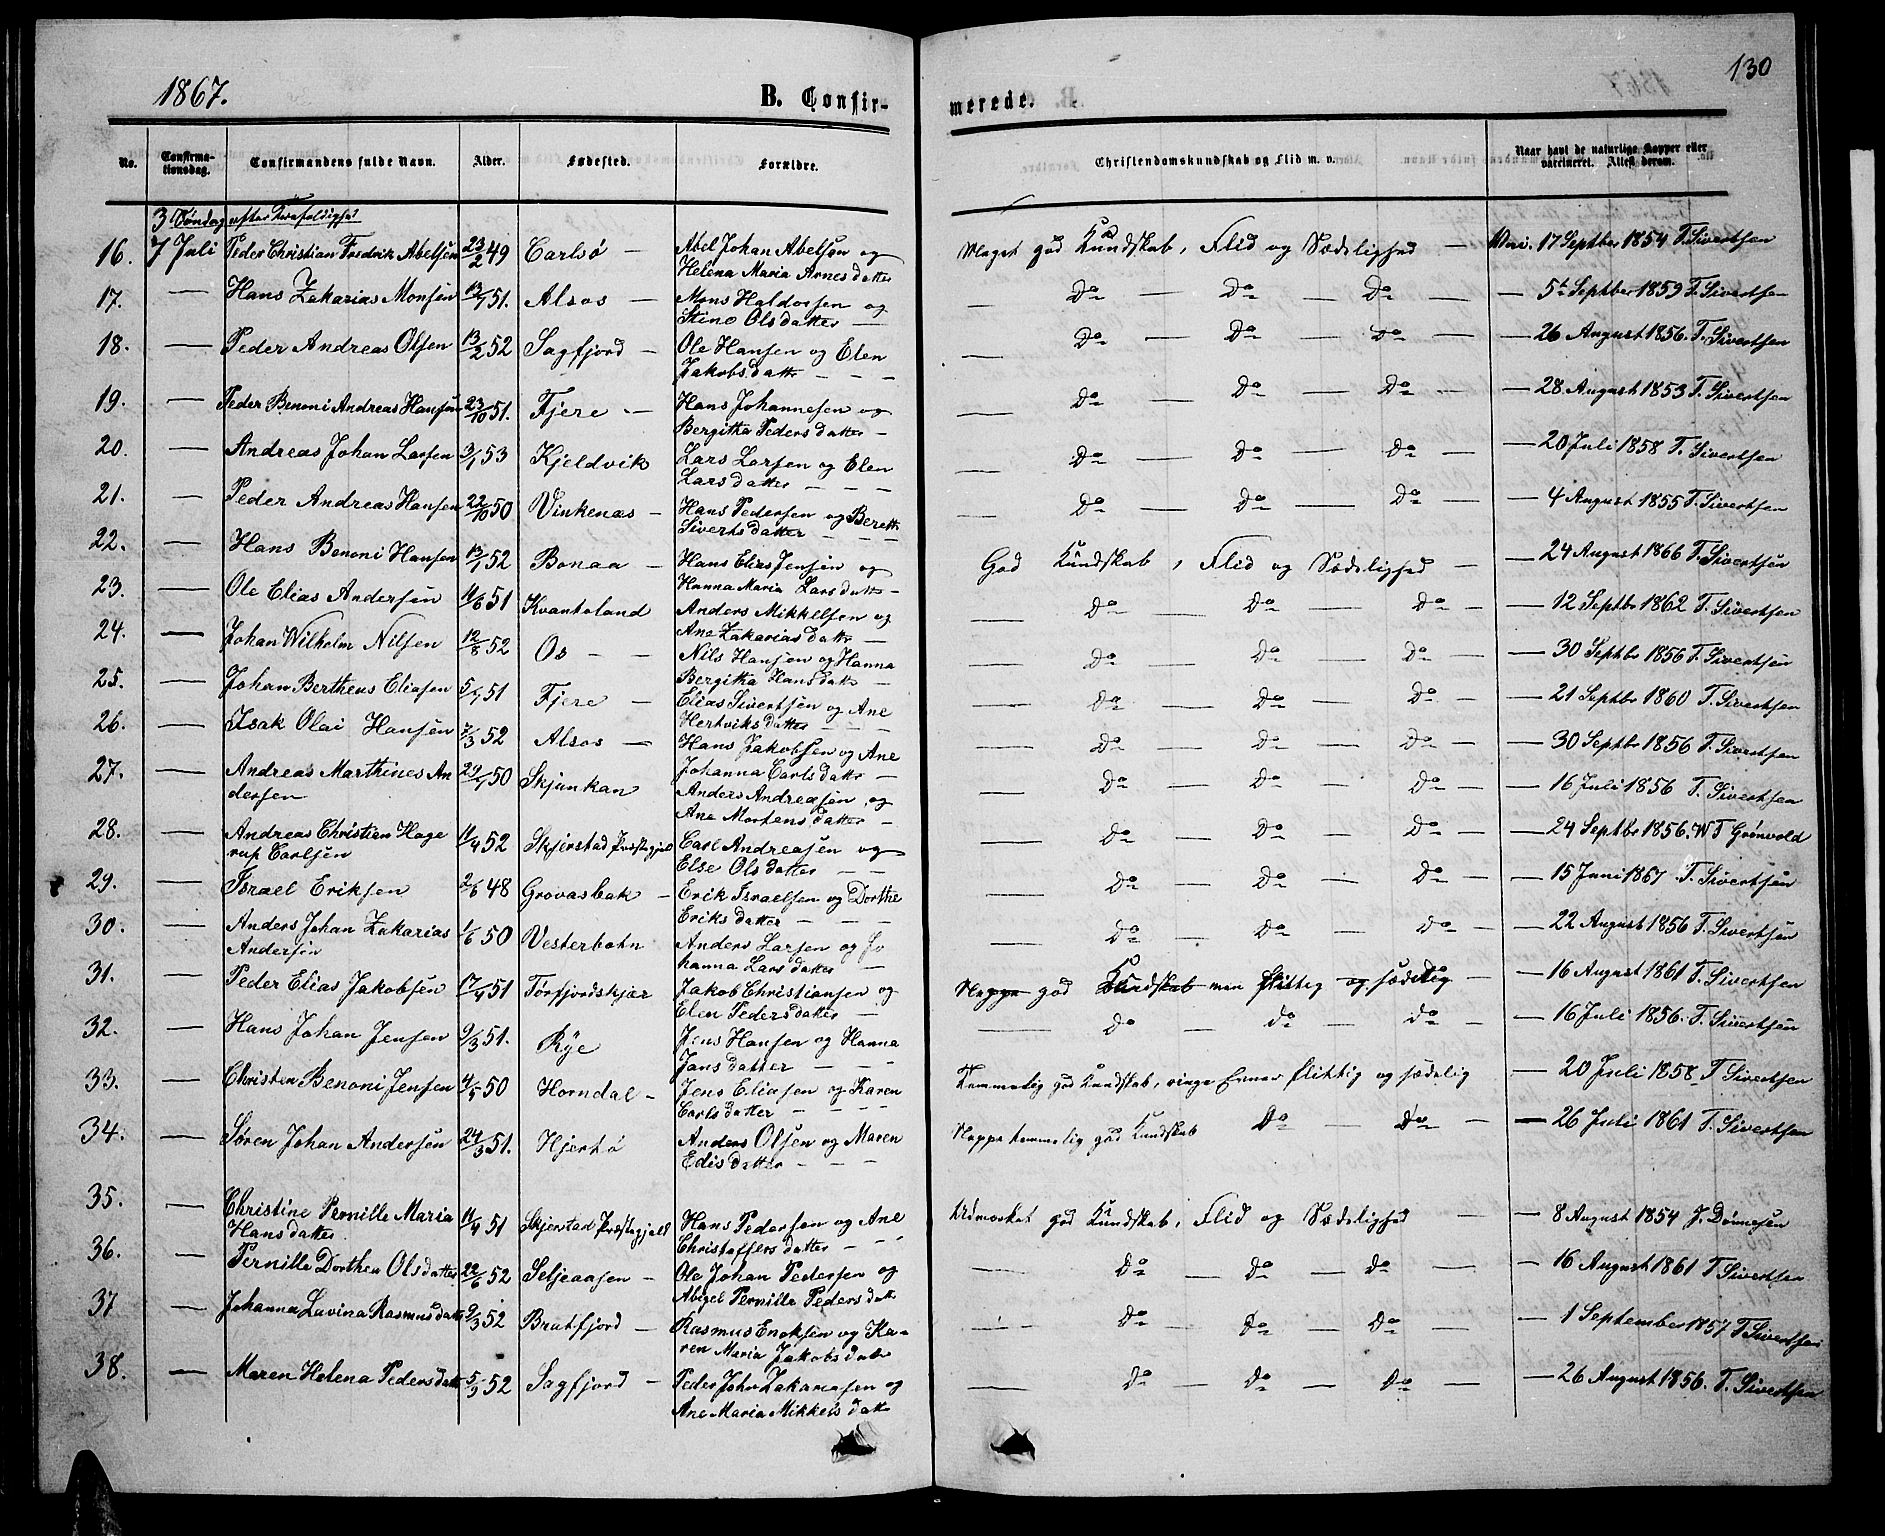 1867.
B. Confir-
merede.
130
No.
Confirma-
tionsdag.
Confirmandens fulde Navn.
Alder.
Fødested.
Forældre.
Christendomskundskab og Flid m. v.
Naar havt de naturlige Kopper eller
vaccineret. Attest derom.
3 Søndag efter Trefoldighed
16. 7 Juli Peder Christian Fredrik Abelsen 23/2 49 Carlsö — Abel Johan Abelsen og
Helena Maria Arnesdatter
Meget god Kundskab, Flid og Sædelighed — 17 Septbr 1854 T. Sivertsen
17. — Hans Zakarias Monsen 13/7 51. Alsos — Mons Haldorsen og
Stine Olsdatter —
— Do — Do — Do — — 5te Septbr 1859 T. Sivertsen
18. — Peder Andreas Olsen 13/2 52 Sagfjord — Ole Hansen og Elen
Jakobsdatter — — —
— Do — Do — Do — — 26 August 1856. T. Sivertsen
19. — Peder Benoni Andreas Hansen 23/10 51. Fjere — Hans Johannesen og
Bergitha Pedersdatter —
— Do — Do — Do — — 28 August 1853 T. Sivertsen
20. — Andreas Johan Larsen 3/1 53 Kjeldvik Lars Larsen og Elen
Larsdatter — — —
— Do — Do — Do — — 20 Juli 1858 T. Sivertsen
21. — Peder Andreas Hansen 22/10 50 Vinkenæs — Hans Pedersen og Berett
Sivertsdatter — — —
— Do — Do — Do — — 4 August 1855 T. Sivertsen
22. — Hans Benoni Hansen 13/1 52 Bonaa — Hans Elias Jensen og
Hanna Maria Larsdatter —
God Kundskab, Flid og Sædelighed — — 24 August 1866 T. Sivertsen
23. — Ole Elias Andersen 11/6 51 Kvantoland Anders Mikkelsen og
Ane Zakariasdatter —
— Do — Do — Do — — 12 Septbr 1862 T. Sivertsen
24. — Johan Wilhelm Nilsen 12/8 52 Os — — Nils Hansen og Hanna
Bergitha Hansdatter —
— Do — Do — Do — — 30 Septbr 1856 T. Sivertsen
25. — Johan Bertheus Eliasen 5/1 51 Fjere — Elias Sivertsen og Ane
Hertviksdatter — —
— Do — Do — Do — — 21 Septbr 1860 T. Sivertsen
26. — Isak Olai Hansen 7/3 52 Alsos — Hans Jakobsen og Ane
Johanna Carlsdatter —
— Do — Do — Do — — 30 Septbr 1856 T. Sivertsen
27. — Andreas Marthines An
dersen 29/1 50 Skjunkan Anders Andreasen og
Ane Mortensdatter —
— Do — Do — Do — — 16 Juli 1856 T. Sivertsen
28. — Andreas Christian Hage
rup Carlsen 11/4 52 Skjerstad Præstegjeld Carl Andreasen og
Else Olsdatter — —
— Do — Do — Do — — 24 Septbr 1856. W T Grønvold
29. — Israel Eriksen 2/6 48 Grovasbak — Erik Israelsen og Dorthe
Eriksdatter — — —
— Do — Do — Do — — 15 Juni 1867 T. Sivertsen
30. — Anders Johan Zakarias
Andersen 1/6 50 Vesterbotn Anders Larsen og Jo
hanna Larsdatter —
— Do — Do — Do — — 22 August 1856 T. Sivertsen
31. — Peder Elias Jakobsen 17/4 51 Törfjordskjær Jakob Christiansen og
Elen Pedersdatter —
Neppe god Kundskab men flittig og sædelig — 16 August 1861 T. Sivertsen
32. — Hans Johan Jensen 9/3 51. Rye Jens Hansen og Hanna
Jansdatter — — —
— Do — Do — Do — — 16 Juli 1856. T. Sivertsen
33. — Christen Benoni Jensen 4/5 50 Horndal — Jens Eliasen og Karen
Carlsdatter — — — —
Temmelig god Kundskab, ringe Evner flittig og sædelig — 20 Juli 1858 T Sivertsen
34. — Søren Johan Andersen 24/3 51. Hjertö Anders Olsen og Maren
Edisdatter — — —
Neppe temmelig god Kundskab Do — Do — — 26 Juli 1861 T. Sivertsen
35. — Christine Pernille Maria
Hansdatter 11/4 51 Skjerstad Præstegjeld Hans Pedersen og Ane
Christoffersdatter — — —
Udmærket god Kundskab, Flid og Sædelighed — — 8 August 1854 J. Dönnesen
36. — Pernille Dorthea Olsdatter 22/6 52 Seljeaasen — Ole Johan Pedersen og
Abigel Pernille Pedersdatt
— Do — Do — Do — — 16 August 1861 T Sivertsen
37 — Johanna Lavina Rasmusdatt 9/3 52 Brutfjord — Rasmus Enoksen og Ka-
ren Maria Jakobsdatt
— Do — Do — Do — — 1 September 1857 T Sivertsen
38. — Maren Helena Pedersdatt 5/9 52 Sagfjord — Peder John Zakariasen og
Ane Maria Mikkelsdatt
— Do — Do — Do — — 26 August 1856. T. Sivertsen